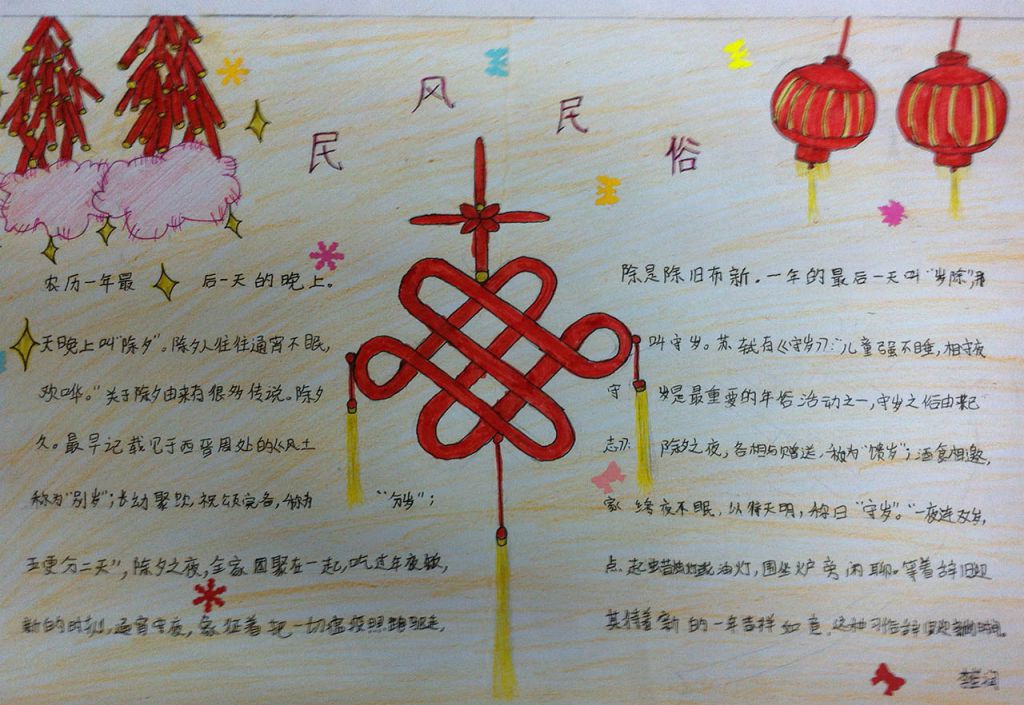 民风民俗
农历一年最后一天的晚上。除是除旧布新。一年的最后一天叫"岁除",那
天晚上叫"除夕"。除夕人往往通宵不眠,叫守岁。苏轼有《守岁》:"儿童强不睡,相守夜
欢哗。"关于除夕由来有很多传说。除夕守岁是最重要的年俗活动之一,守岁之俗由来已
久。最早记载见于西晋周处的《风土志》:除夕之夜,各相与赠送,称为"馈岁";酒食相邀,
称为"别岁";长幼聚饮,祝颂完备,称为"分岁";家终夜不眠,以待天明,称曰"守岁"。"一夜连双岁,
五更分二天",除夕之夜,全家团聚在一起,吃过年夜饭,点起蜡烛或油灯,围坐炉旁闲聊,等着辞旧迎
新的时刻,通宵守夜,象征着把一切瘟疫照跑驱走,期待着新的一年吉祥如意。这种习俗辞旧迎新的时间。